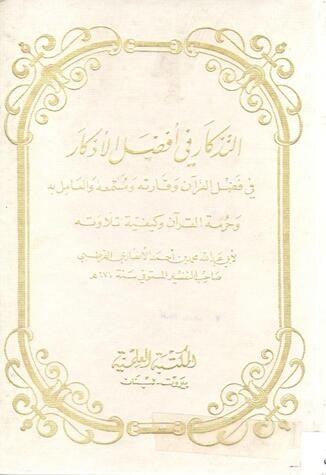 التذكار في أفضل الأذكار
في فضل القرآن وقارئه ومستمعه والعامل به
وحرمة القرآن وكيفية تلاوته
لأبي عبد الله محمد بن أحمد الأنصاري القرطبي
صاحب التفسير المتوفى سنة ٦٧١ هـ
المكتبة العلمية
بيروت - لبنان